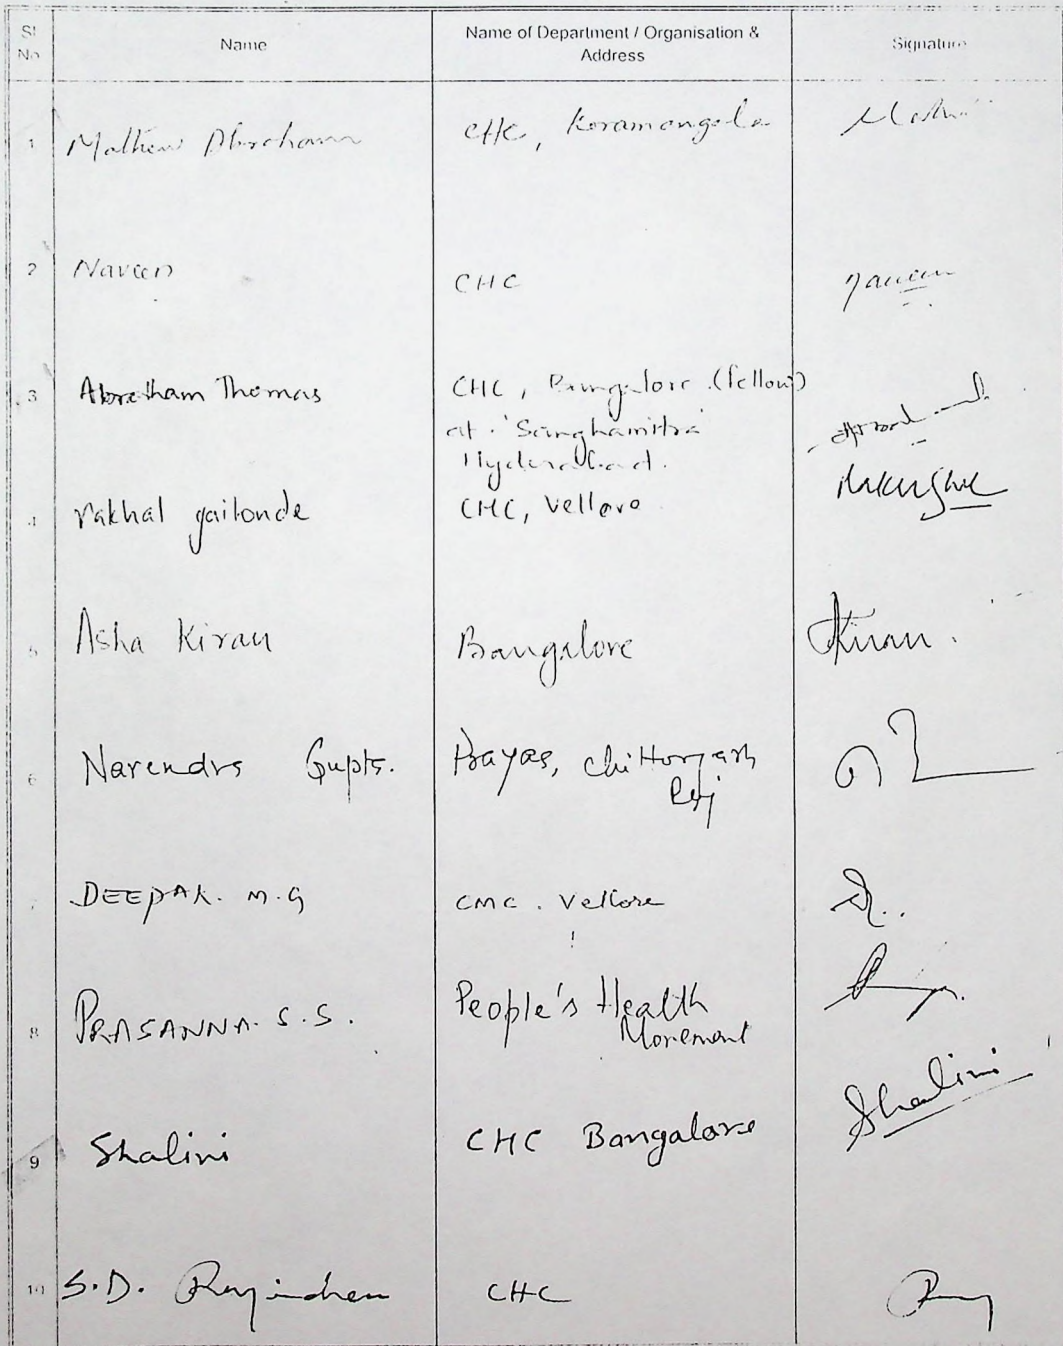 Sl No Name Name of Department / Organisation & Address Signature
1 Mathew Abraham CHC, Koramangala
2 Naveen CHC Naveen
3 Abraham Thomas CHC, Bangalore (fellow)
at 'Sanghamitra'
Hyderabad.
4 rakhal gaitonde CHC, Vellore
5 Asha Kiran Bangalore AKiran.
6 Narendra Gupta. Prayas, Chittorgarh
Raj
7 DEEPAK. M.G CMC. Vellore
8 PRASANNA. S.S. People's Health
Movement
9 Shalini CHC Bangalore Shalini
10 S.D. Rajendran CHC